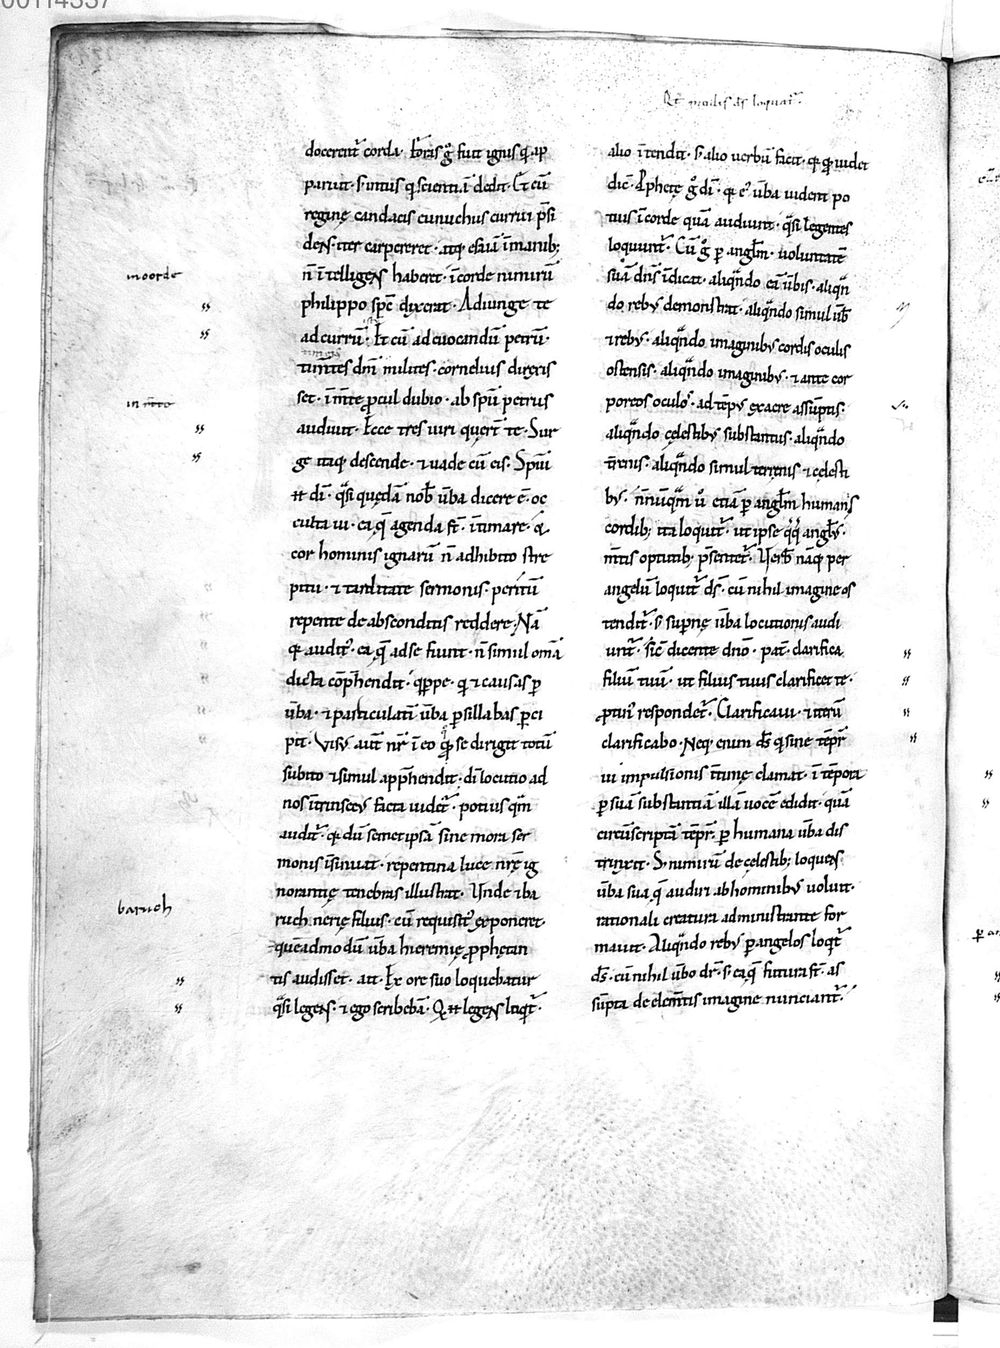 00114337
Qt̄ modis ds̄ loquat᷑.
docerent᷑ corda. Foris g̊ fuit ignis q̄ ap
paruit. s; intus q̄ scientiā dedit. Et cū
reginę candacis eunuchus currui p̄si
dens. iter carperet. atq; esaiā īmanib;
n̄ ītelligens haberet. īcorde nimirū
philippo sp̄c dixerat. Adiunge te
ad currū. Et cū ad euocandū petrū.
timētes dm̄ milites. cornelius direxis
set. īm̄te ꝓcul dubio. ab spū petrus
audiuit. Ecce tres uiri quert̄ te. Sur
ge itaq; descende. ⁊ uade cū eis. Spūi
&t di. q̄si quędā nob̄ ūba dicere ē. oc
culta ui. ea q̄ agenda st̄. ītimare. &
cor hominis ignarū n̄ adhibito stre
pitu. ⁊ tarditate sermonis. peritū
repente de absconditis reddere. Nā
q; audit᷑. ea q̄ adse fiunt. n̄ simul omā
dicta cōp̄hendit. q̄ppe. q; ⁊ causas p̲
ūba. ⁊ particulatī ūba p̲sillabas p̲ci
pit. Visꝰ aut̄ nr̄ ī eo q̄ se dirigit totū
subito ⁊ simul app̄hendit. dī locutio ad
nos ītrinsecꝰ facta uidet᷑. potius q̄m
audit᷑. q; dū semetipsā sine mora ser
monis īsinuat. repentina luce nr̄ę ig
norantię tenebras illustrat. Unde ⁊ ba
ruch nerię filius. cū requisitꝰ exponeret.
quēadmodū ūba hieremię ꝓphętan
tis audisset. ait. Ex ore suo loquebatur
q̄si legens. ⁊ ego scribebā. Q &t legens loq̄t᷑.
in corde
in m̄te
baruch
alio ītendit. s; alio uerbū facit. q; q̄ uidet
dic̄. Ꝓphetę g̊ dī. q; eiꝰ ūba uident po
tius īcorde quā audiunt. q̄si legentes
loquunt᷑. Cū g̊ p̲ angl̄m. uoluntatē
suā dn̄s īdicat. aliq̄ndo eā ūbis. aliq̄n
do rebꝰ demonstrat. aliq̄ndo simul ūb̄
⁊ rebꝰ. aliq̄ndo imaginibꝰ cordis oculis
ostensis. aliq̄ndo imaginibꝰ. ⁊ ante cor
poreos oculoˢ. ad tēpꝰ ex aere assūptis.
aliq̄ndo cęlestibꝰ substantiis. aliq̄ndo
t̄renis. aliq̄ndo simul terrenis ⁊ cęlesti
bꝰ. n̄nūq̄m u̇ etiā p̲ angl̄m humanis
cordib; ita loquit᷑. ut ipse q̇q̇ anglꝰ.
m̄tis optutib; p̄sentet᷑. Uerb̄ naq; per
angelū loquit᷑ ds̄. cū nihil imagine os
tendit᷑. s; supnę ūba locutionis audi
unt᷑. sic̄ dicente dn̄o. pat̄. clarifica
filiū tuū. ut filius tuus clarificet te.
ꝓtin᷑ respondet᷑. Clarificaui. ⁊ iterū
clarificabo. Neq; enim ds̄. q̄ sine tēpr̄
ui impulsionis ītimę clamat. ī tēpora
p̲ suā substantiā illā uocē edidit. quā
circūscriptā tēpr̄. p̲ humana ūba dis
trinxit. S; nimirū de cęlestib; loquens
ūba sua q̄ audiri ab hominibꝰ uoluit.
rationali creatura administrante for
mauit. Aliq̄ndo rebꝰ p̲ angelos loq̄t᷑
ds̄. cū nihil ūbo dr̄. s; ea q̄ futura st̄. as
sūpta de elem̄tis imagine nunciant᷑.